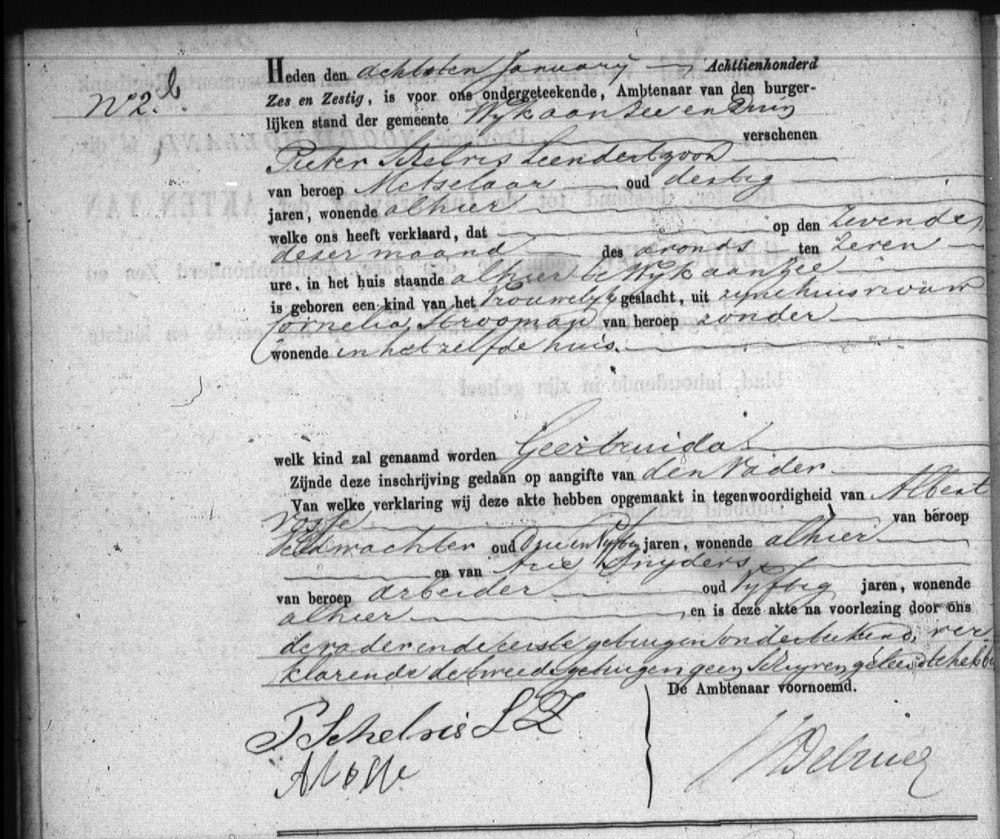 No 2.
Heden den achtsten January Achttienhonderd
Zes en Zestig, is voor ons ondergeteekende, Ambtenaar van den burger-
lijken stand der gemeente Wijk aan Zee en Duin
verschenen
Pieter Schelvis Leendertzoon
van beroep Metselaar oud dertig
jaren, wonende alhier
welke ons heeft verklaard, dat op den zevenden
dezer maand des avonds ten zeven
ure, in het huis staande alhier te Wijk aan Zee
is geboren een kind van het Vrouwelijk geslacht, uit zijne huisvrouw
Cornelia Strooman van beroep zonder
wonende in het zelfde huis.
welk kind zal genaamd worden Geertruida
Zijnde deze inschrijving gedaan op aangifte van den Vader
Van welke verklaring wij deze akte hebben opgemaakt in tegenwoordigheid van Albert
Vosse van beroep
Veldwachter oud Drie en Vijftig jaren, wonende alhier
en van Arie Snyders
van beroep arbeider oud Vijftig jaren, wonende
alhier, en is deze akte na voorlezing door ons
de vader en de eerste getuigen onderteekend, ver-
klarende de tweede getuigen geen schryven geleerd te hebben
De Ambtenaar voornoemd.
P Schelvis LZ
A Vosse